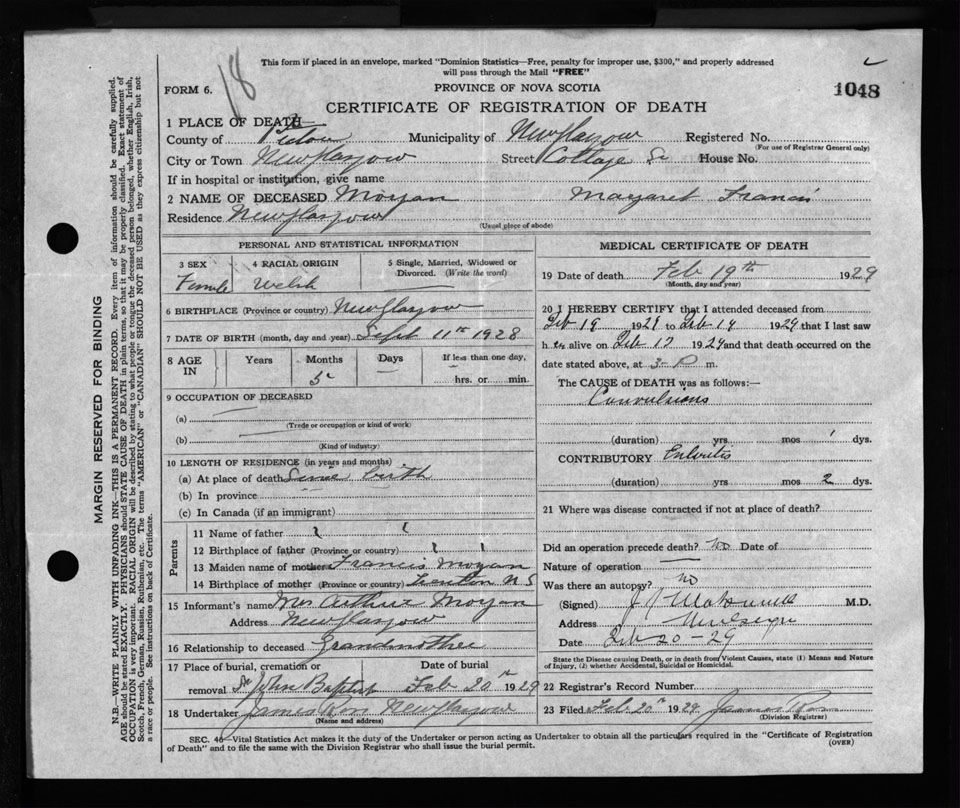 This form if placed in an envelope, marked "Dominion Statistics—Free, penalty for improper use, $300," and properly addressed
will pass through the Mail "FREE"
18
FORM 6.
PROVINCE OF NOVA SCOTIA
1048
CERTIFICATE OF REGISTRATION OF DEATH
1 PLACE OF DEATH
County of Pictou Municipality of New Glasgow Registered No.
(For use of Registrar General only)
City or Town New Glasgow Street College St House No.
If in hospital or institution, give name
2 NAME OF DECEASED Morgan Margaret Francis
Residence New Glasgow
(Usual place of abode)
PERSONAL AND STATISTICAL INFORMATION
3 SEX 4 RACIAL ORIGIN 5 Single, Married, Widowed or Divorced. (Write the word)
Female Welsh —
6 BIRTHPLACE (Province or country) New Glasgow
7 DATE OF BIRTH (month, day and year) Sept 11th 1928
8 AGE IN Years Months Days If less than one day,
5 — hrs. or min.
9 OCCUPATION OF DECEASED
(a) —
(Trade or occupation or kind of work)
(b) —
(Kind of industry)
10 LENGTH OF RESIDENCE (in years and months)
(a) At place of death Since birth
(b) In province —
(c) In Canada (if an immigrant)
Parents
11 Name of father ? ?
12 Birthplace of father (Province or country) ? ?
13 Maiden name of mother Francis Morgan
14 Birthplace of mother (Province or country) Trenton N S
15 Informant's name Mrs Arthur Morgan
Address New Glasgow
16 Relationship to deceased Grandmother
17 Place of burial, cremation or Date of burial
removal St John Baptist Feb 20th 1929
18 Undertaker James New Glasgow
(Name and address)
MEDICAL CERTIFICATE OF DEATH
19 Date of death Feb 19th 1929
(Month, day and year)
20 I HEREBY CERTIFY that I attended deceased from
Feb 19 1929 to Feb 19 1929 that I last saw
h er alive on Feb 1929 and that death occurred on the
date stated above, at 3 P m.
The CAUSE of DEATH was as follows:—
Convulsions
(duration) yrs mos 1 dys.
CONTRIBUTORY
(duration) yrs mos 2 dys.
21 Where was disease contracted if not at place of death?
Did an operation precede death? No Date of
Nature of operation —
Was there an autopsy? No
(Signed) M.D.
Address
Date Feb 20-29
State the Disease causing Death, or in death from Violent Causes, state (1) Means and Nature
of Injury, (2) whether Accidental, Suicidal or Homicidal.
22 Registrar's Record Number
23 Filed Feb 20th 1929 James
(Division Registrar)
SEC. 46 Vital Statistics Act makes it the duty of the Undertaker or person acting as Undertaker to obtain all the particulars required in the "Certificate of Registration
of Death" and to file the same with the Division Registrar who shall issue the burial permit.
(OVER)
MARGIN RESERVED FOR BINDING
N.B.—WRITE PLAINLY WITH UNFADING INK—THIS IS A PERMANENT RECORD. Every item of information should be carefully supplied.
AGE should be stated EXACTLY. PHYSICIANS should STATE CAUSE OF DEATH in plain terms, so that it may be properly classified. Exact statement of
OCCUPATION is very important. RACIAL ORIGIN will be described by stating to what people or tongue the deceased person belonged, whether English, Irish,
Scotch, French, German, Russian, Ruthenian, etc. The terms "AMERICAN" or "CANADIAN" SHOULD NOT BE USED as they express citizenship but not
a race or people. See instructions on back of Certificate.